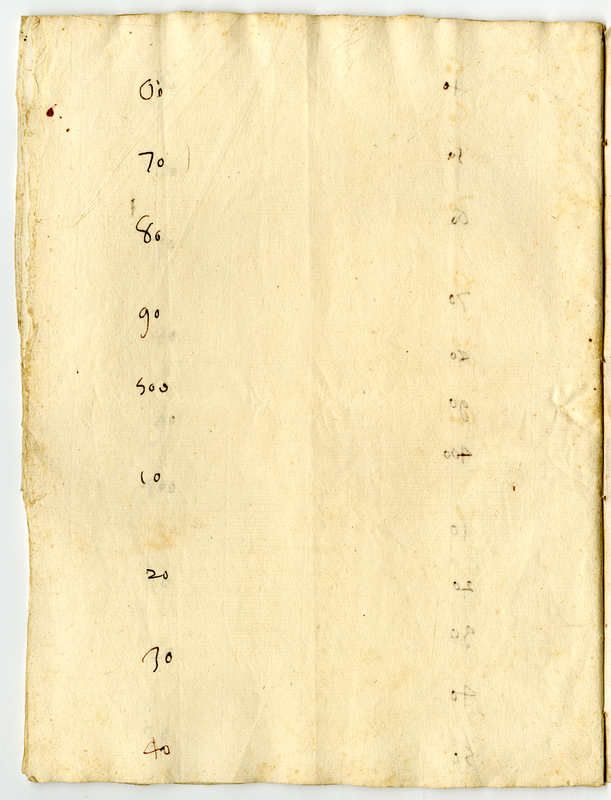 60
70
80
90
500
10
20
30
40